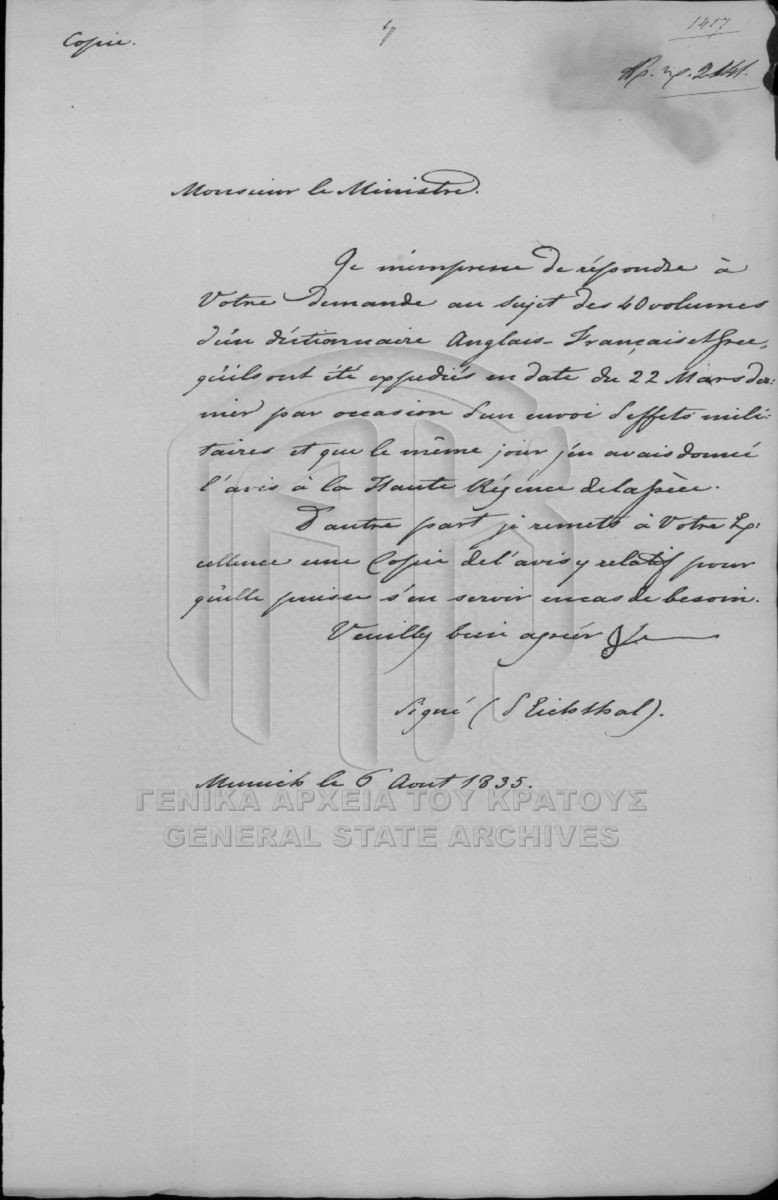 Copie.
1417
Ap. πρ. 2141.
Monsieur le Ministre.
Je m'empresse de répondre à
Votre demande au sujet des 40 volumes
d'un dictionnaire Anglais-Français et grec,
qu'ils ont été expediés en date du 22 Mars der:
nier par occasion d'un envoi d'effets mili:
taires et que le même jour j'en avais donné
l'avis à la Haute Régence de la Grèce.
D'autre part je remets à Votre Ex:
cellence une Copie de l'avis y relatif pour
qu'elle puisse s'en servir en cas de besoin.
Veuillez bien agréer &c
Signé (d'Eichthal).
Munich le 6 Aout 1835.
ΓΕΝΙΚΑ ΑΡΧΕΙΑ ΤΟΥ ΚΡΑΤΟΥΣ
GENERAL STATE ARCHIVES